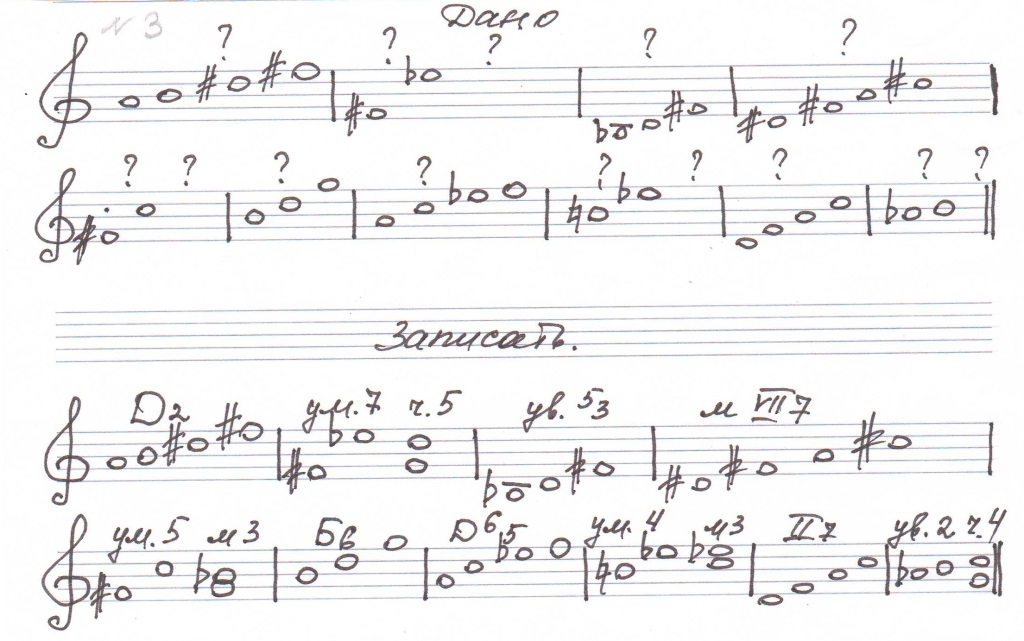 №3 Дано
? ? ? ? ?
? ? ? ? ? ? ? ? ?
Записать.
D2 ум.7 ч.5 ув.53 м VII7
ум.5 м3 Б6 D65 ум.4 м3 II7 ув.2 ч.4